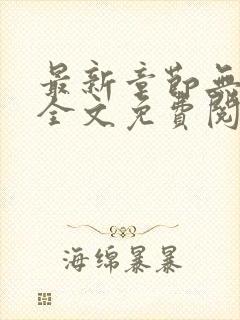 最新章节无
全文免费阅
海绵暴暴